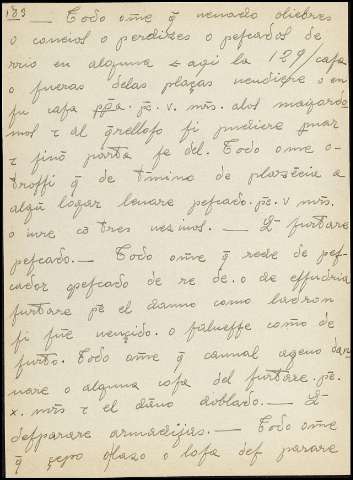 183 — Todo ome q̃ uenado oliebres
o coneios o perdizes o pescados de
rrio en alguna
o fueras delas plaças uendiere o en
su casa ppa. pẽ. v. mrs. alos mayordo
mos τ al q̃relloso si pudiere prouar
τ sinõ parta se del. Todo ome o-
trossi q̃ de tẽmino de plazẽcia a
algũ logar leuare pescado. pẽ. v mrs.
o iure cõ tres uezinos. — Lˣ furtare
pescado. — Todo ome q̃ rede de pes-
cador o pescado de re de. o de
furtare pẽ el danno como ladron
si fue uençido. o saluesse como de
furto. Todo ome q̃ cannal ageno dan
nare o alguna cosa del furtare. pẽ.
x. mrs τ el dãno doblado. — Lˣ
desparare armadijas. — Todo ome
q̃ çepo o lazo o losa des parare